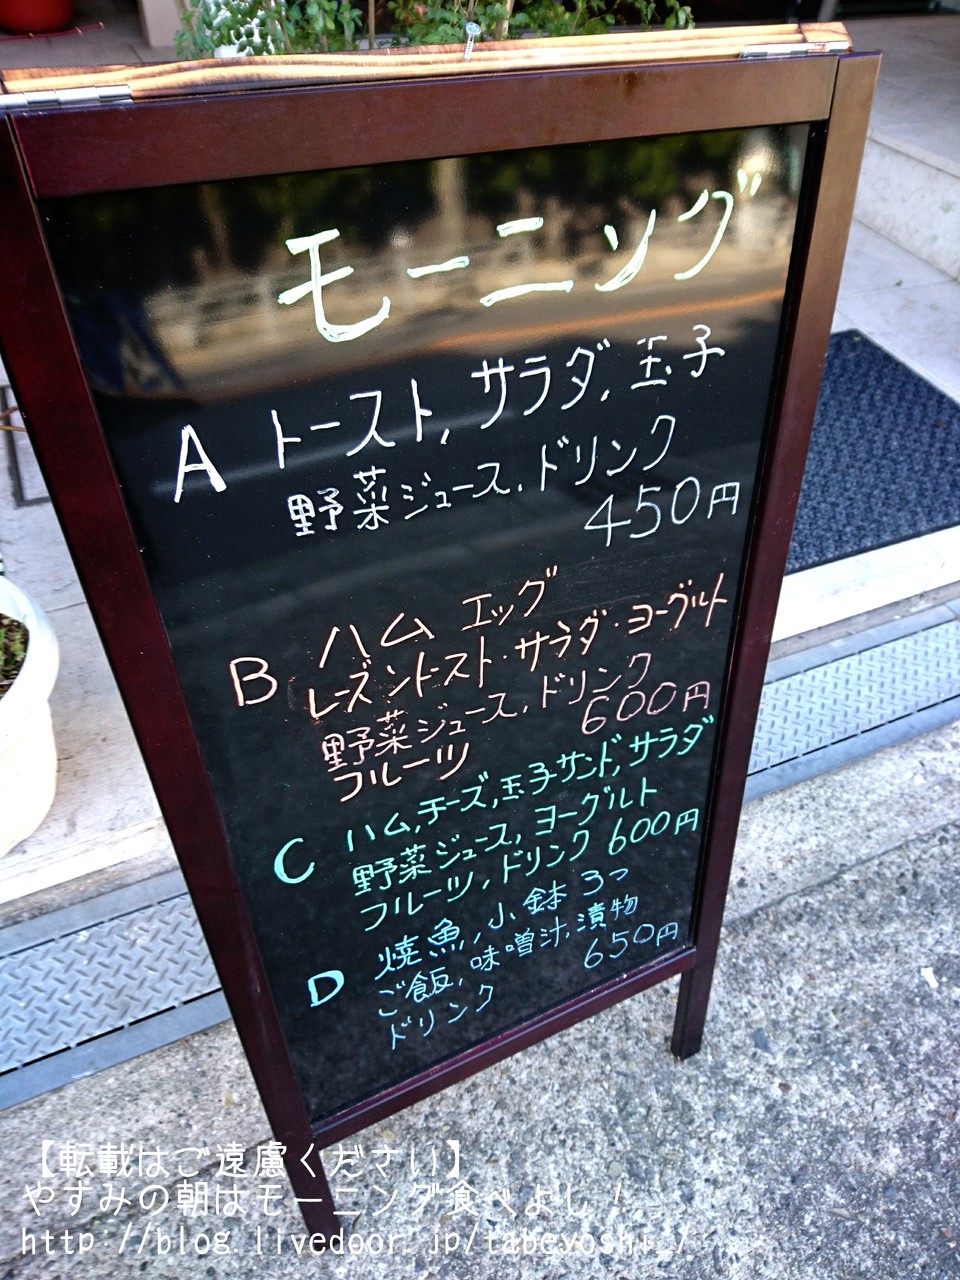 モーニング
A トースト, サラダ, 玉子
野菜ジュース, ドリンク
450円
B ハム エッグ
レーズントースト・サラダ・ヨーグルト
野菜ジュース, ドリンク
フルーツ 600円
C ハム, チーズ, 玉子サンド, サラダ
野菜ジュース, ヨーグルト
フルーツ, ドリンク 600円
D 焼魚, 小鉢 3つ
ご飯, 味噌汁, 漬物
ドリンク 650円
【転載はご遠慮ください】
やすみの朝はモーニング食べよし！
http://blog.livedoor.jp/tabeyoshi_/